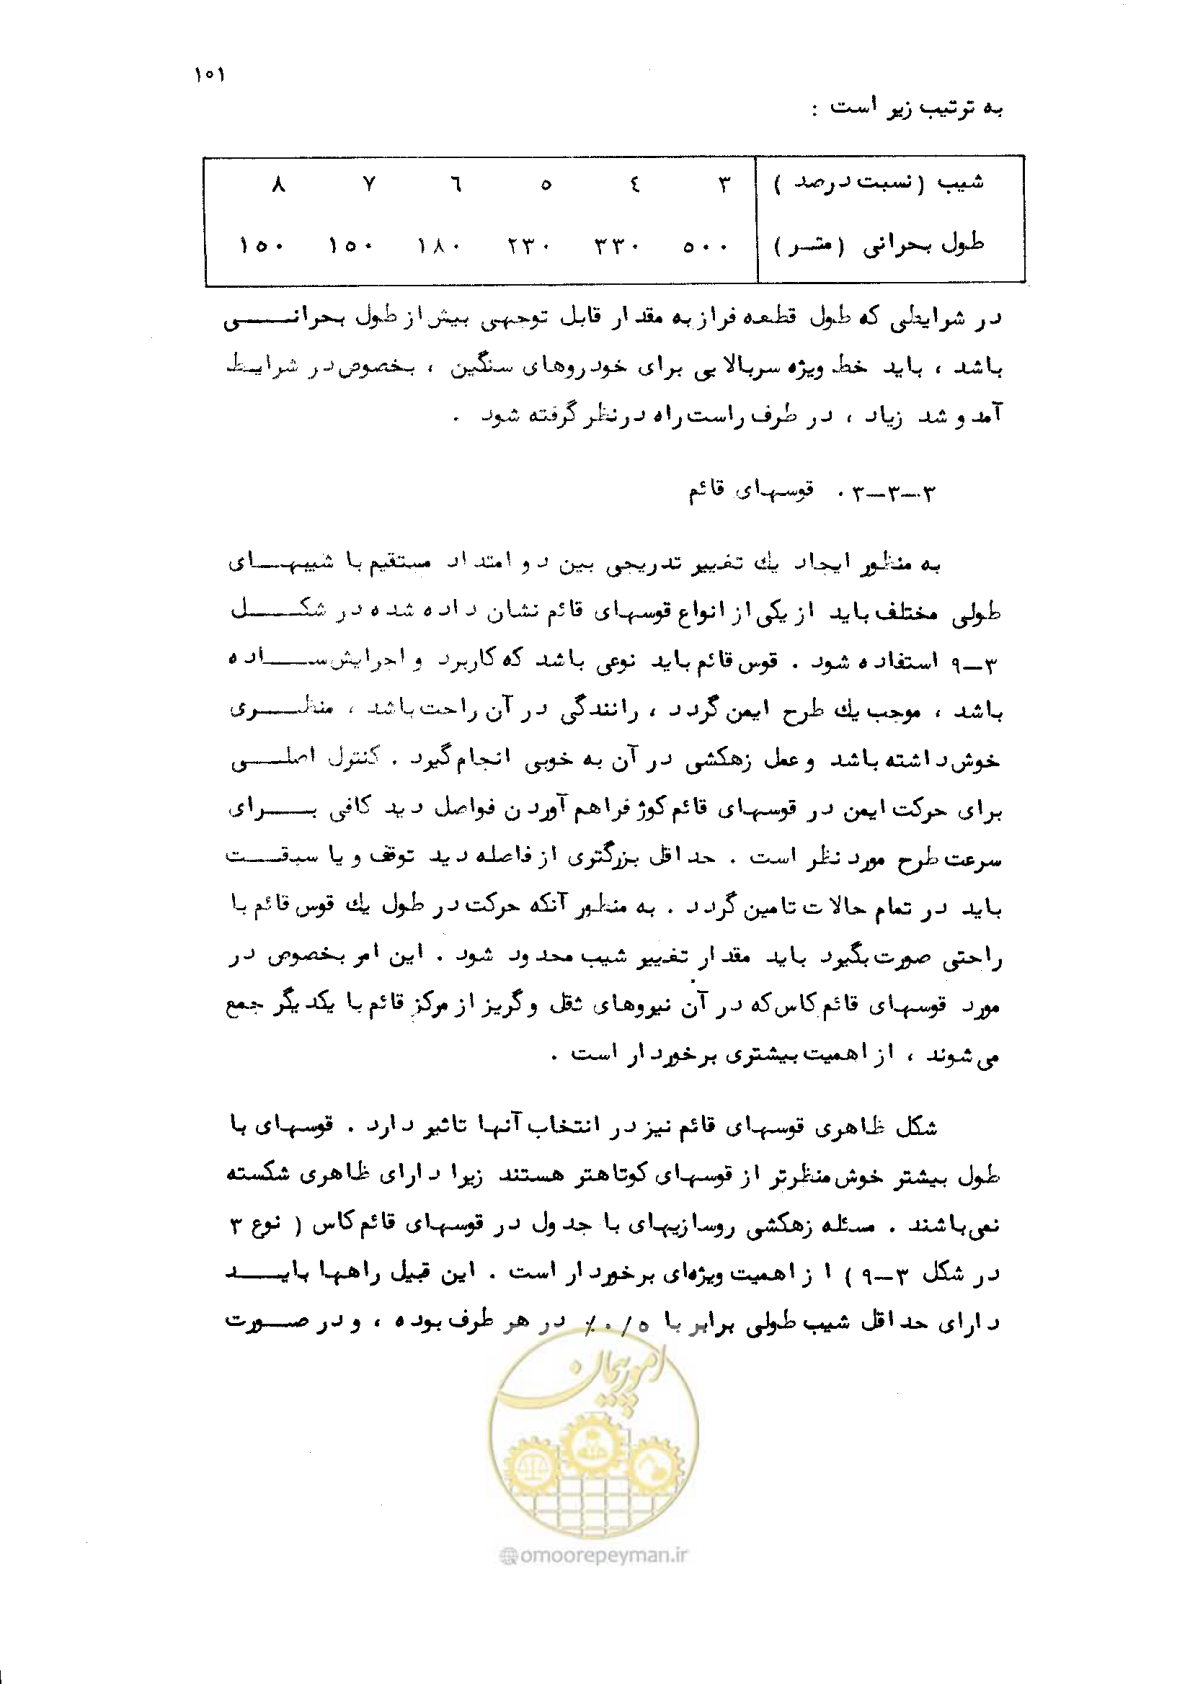 ۱۰۱
به ترتیب زیر است :
شیب (نسبت درصد ) ۳ ٤ ۵ ٦ ۷ ۸
طول بحرانی (متـر) ۵۰۰ ۳۳۰ ۲۳۰ ۱۸۰ ۱۵۰ ۱۵۰
در شرایطی که طول قطعه فراز به مقدار قابل توجهی بیش از طول بحرانــــی
باشد ، باید خط ویژه سربالایی برای خودروهای سنگین ، بخصوص در شرایـط
آمد و شد زیاد ، در طرف راست راه در نظر گرفته شود .
۳-۳-۳ . قوسهای قائم
به منظور ایجاد یك تغییر تدریجی بین دو امتداد مستقیم با شیبهــای
طولی مختلف باید از یکی از انواع قوسهای قائم نشان داده شده در شکـــل
۳-۹ استفاده شود . قوس قائم باید نوعی باشد که کاربرد و اجرایش ســـاده
باشد ، موجب یك طرح ایمن گردد ، رانندگی در آن راحت باشد ، منظـــری
خوش داشته باشد و عمل زهکشی در آن به خوبی انجام گیرد . کنترل اصلـــی
برای حرکت ایمن در قوسهای قائم کوژ فراهم آوردن فواصل دید کافی بـــرای
سرعت طرح مورد نظر است . حداقل بزرگتری از فاصله دید توقف و یا سبقــت
باید در تمام حالات تامین گردد . به منظور آنکه حرکت در طول یك قوس قائم با
راحتی صورت بگیرد باید مقدار تغییر شیب محدود شود . این امر بخصوص در
مورد قوسهای قائم کاس که در آن نیروهای ثقل و گریز از مرکز قائم با یکدیگر جمع
می شوند ، از اهمیت بیشتری برخوردار است .
شکل ظاهری قوسهای قائم نیز در انتخاب آنها تاثیر دارد . قوسهای با
طول بیشتر خوش منظرتر از قوسهای کوتاهتر هستند زیرا دارای ظاهری شکسته
نمی باشند . مسئله زهکشی روسازیهای با جدول در قوسهای قائم کاس ( نوع ۳
در شکل ۳-۹ ) از اهمیت ویژه‌ای برخوردار است . این قبیل راهها بایـــد
دارای حداقل شیب طولی برابر با ۰/۵٪ در هر طرف بوده ، و در صــورت
امور پیمان
@omoorepeyman.ir